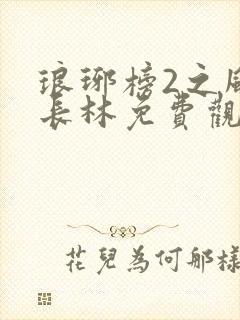 琅琊榜2之風
長林免費觀
花兒為何那樣